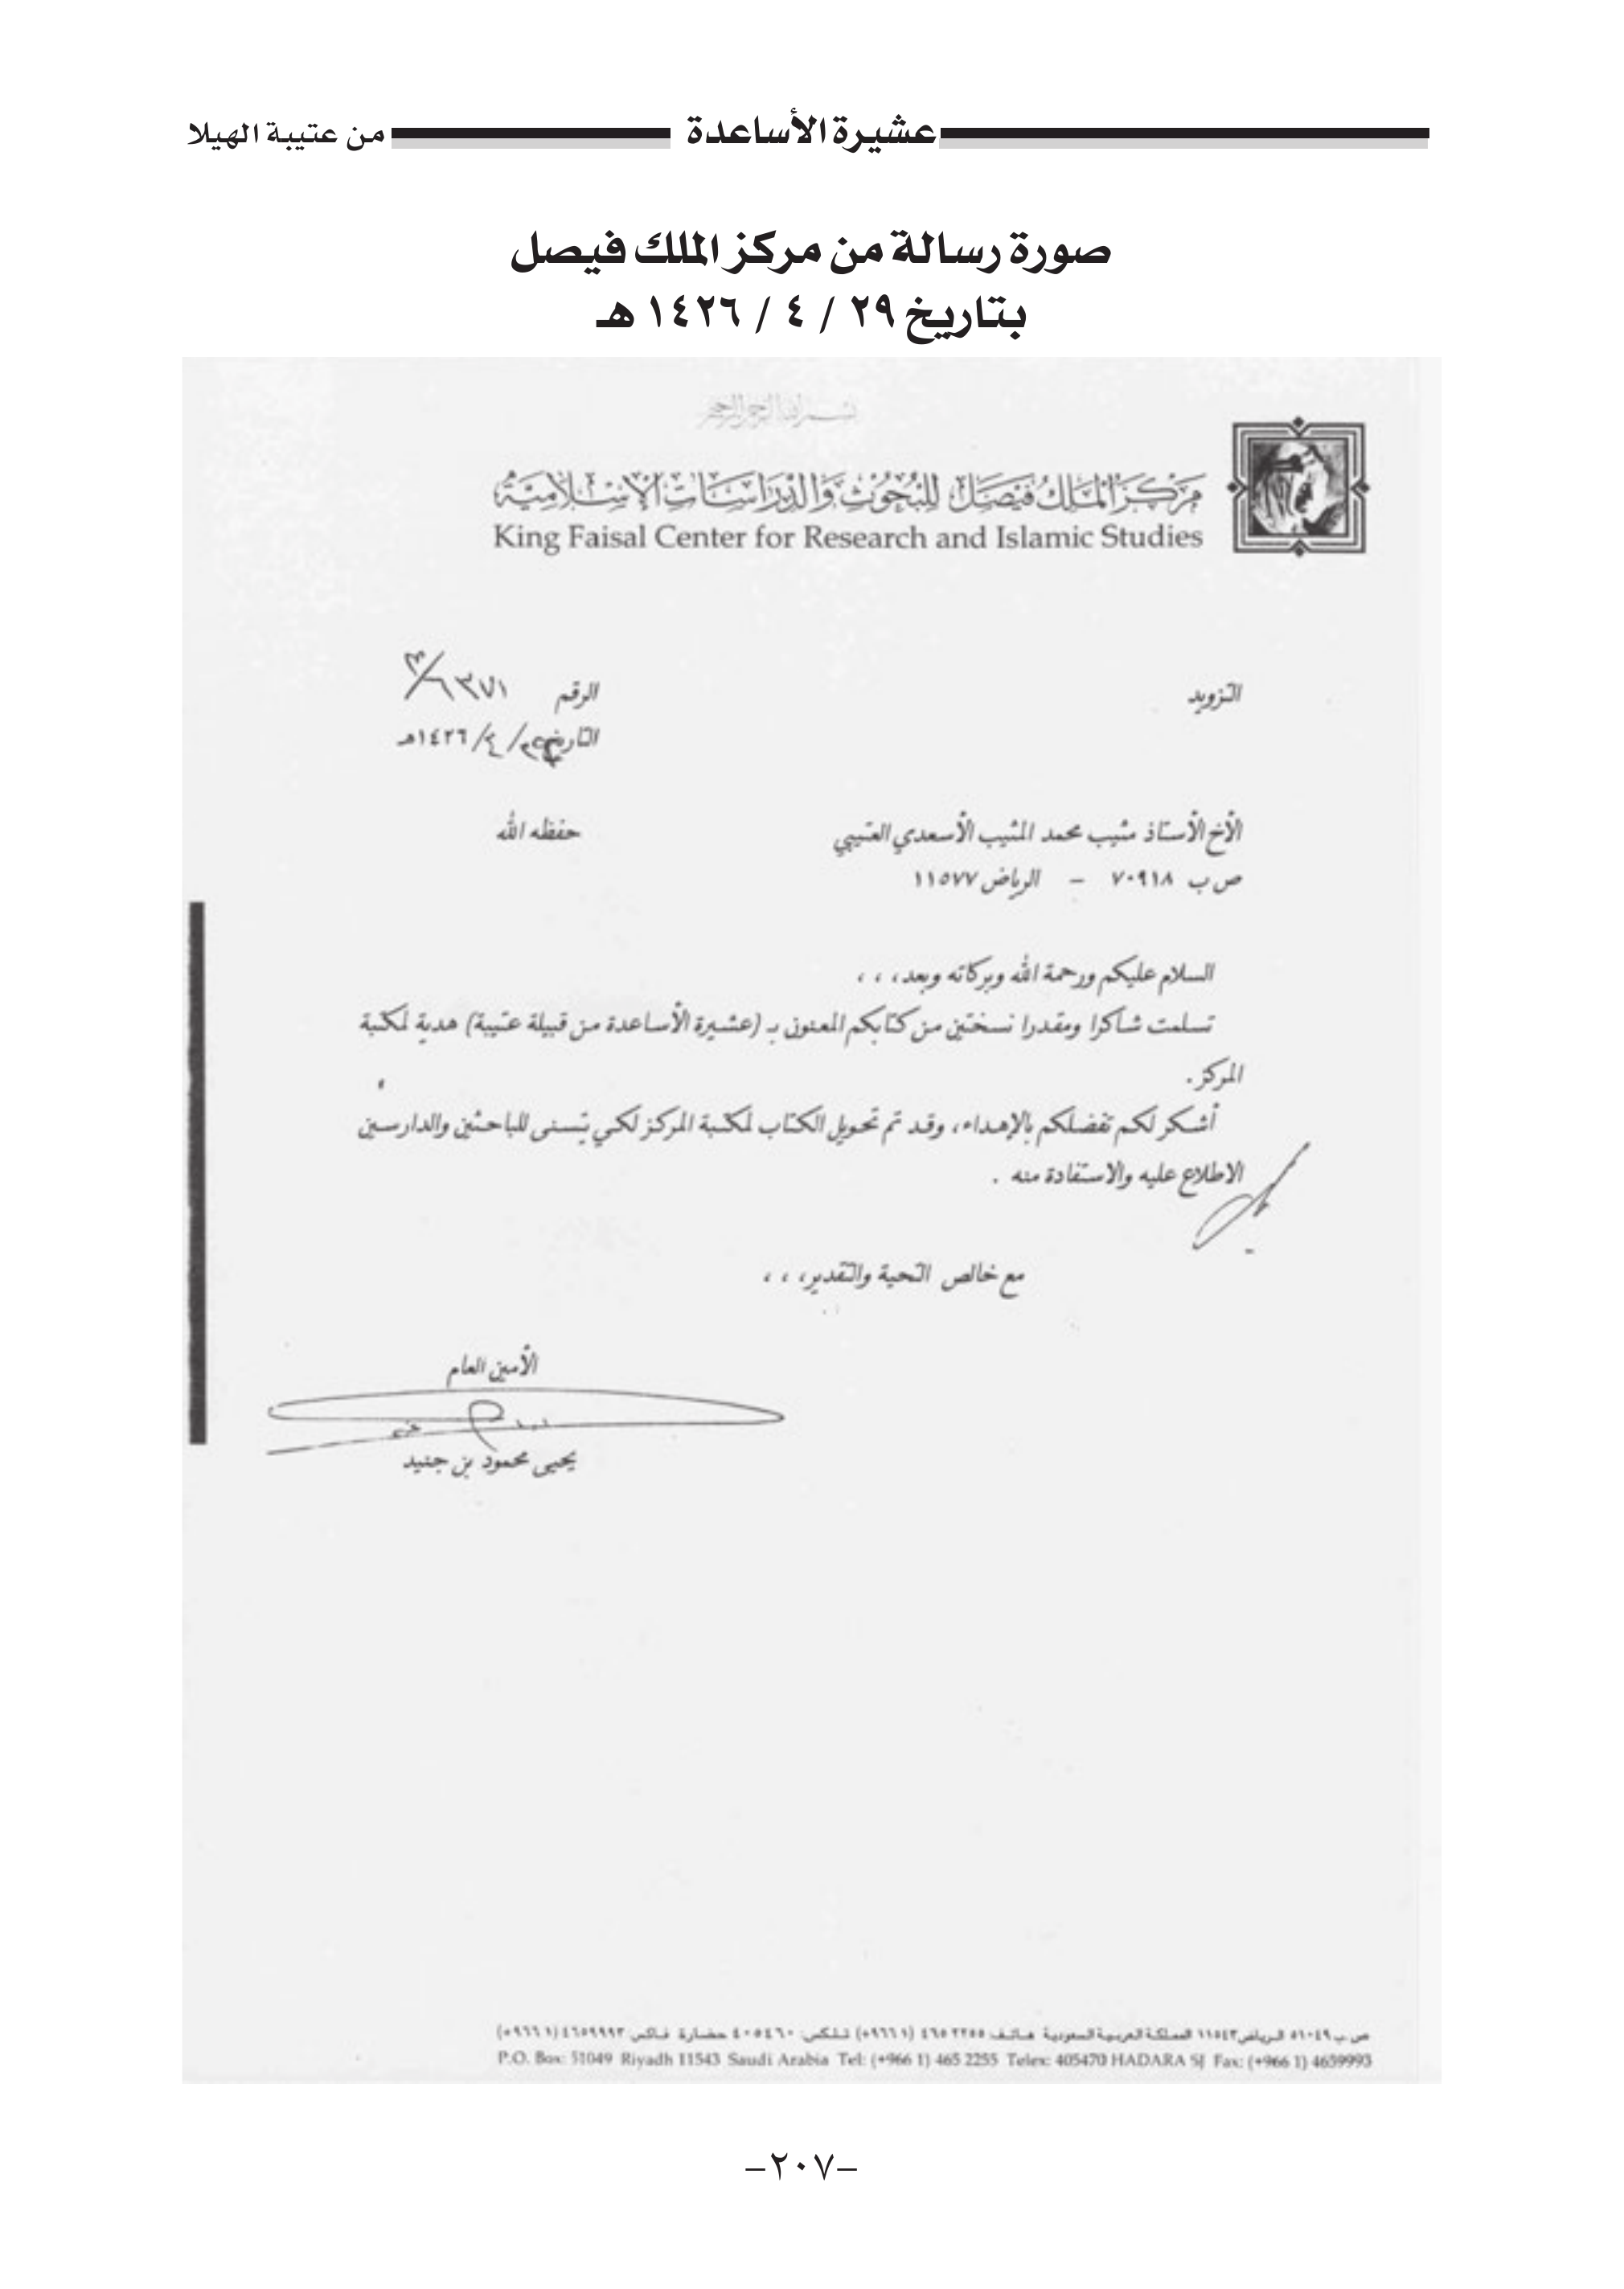 عشيرة الأساعدة من عتيبة الهيلا
صورة رسالة من مركز الملك فيصل
بتاريخ ٢٩ / ٤ / ١٤٢٦ هـ
بسم الله الرحمن الرحيم
مركز الملك فيصل للبحوث والدراسات الإسلامية
King Faisal Center for Research and Islamic Studies
التزويد
الرقم
التاريخ / ٤ / ١٤٢٦هـ
الأخ الأستاذ مثيب محمد المثيب الأسعدي العتيبي حفظه الله
ص ب ٧٠٩١٨ – الرياض ١١٥٧٧
السلام عليكم ورحمة الله وبركاته وبعد، ، ،
تسلمت شاكرا ومقدرا نسختين من كتابكم المعنون بـ (عشيرة الأساعدة من قبيلة عتيبة) هدية لمكتبة
المركز.
أشكر لكم تفضلكم بالإهداء، وقد تم تحويل الكتاب لمكتبة المركز لكي يتسنى للباحثين والدارسين
الاطلاع عليه والاستفادة منه .
مع خالص التحية والتقدير، ، ،
الأمين العام
يحيى محمود بن جنيد
ص ب ٥١٠٤٩ الرياض ١١٥٤٣ المملكة العربية السعودية هاتف: ٤٦٥٢٢٥٥ (٩٦٦١+) تلكس: ٤٠٥٤٦٠ حضارة فاكس: ٤٦٥٩٩٩٣ (٩٦٦١+)
P.O. Box: 51049 Riyadh 11543 Saudi Arabia Tel: (+966 1) 465 2255 Telex: 405470 HADARA SJ Fax: (+966 1) 4659993
–٢٠٧–